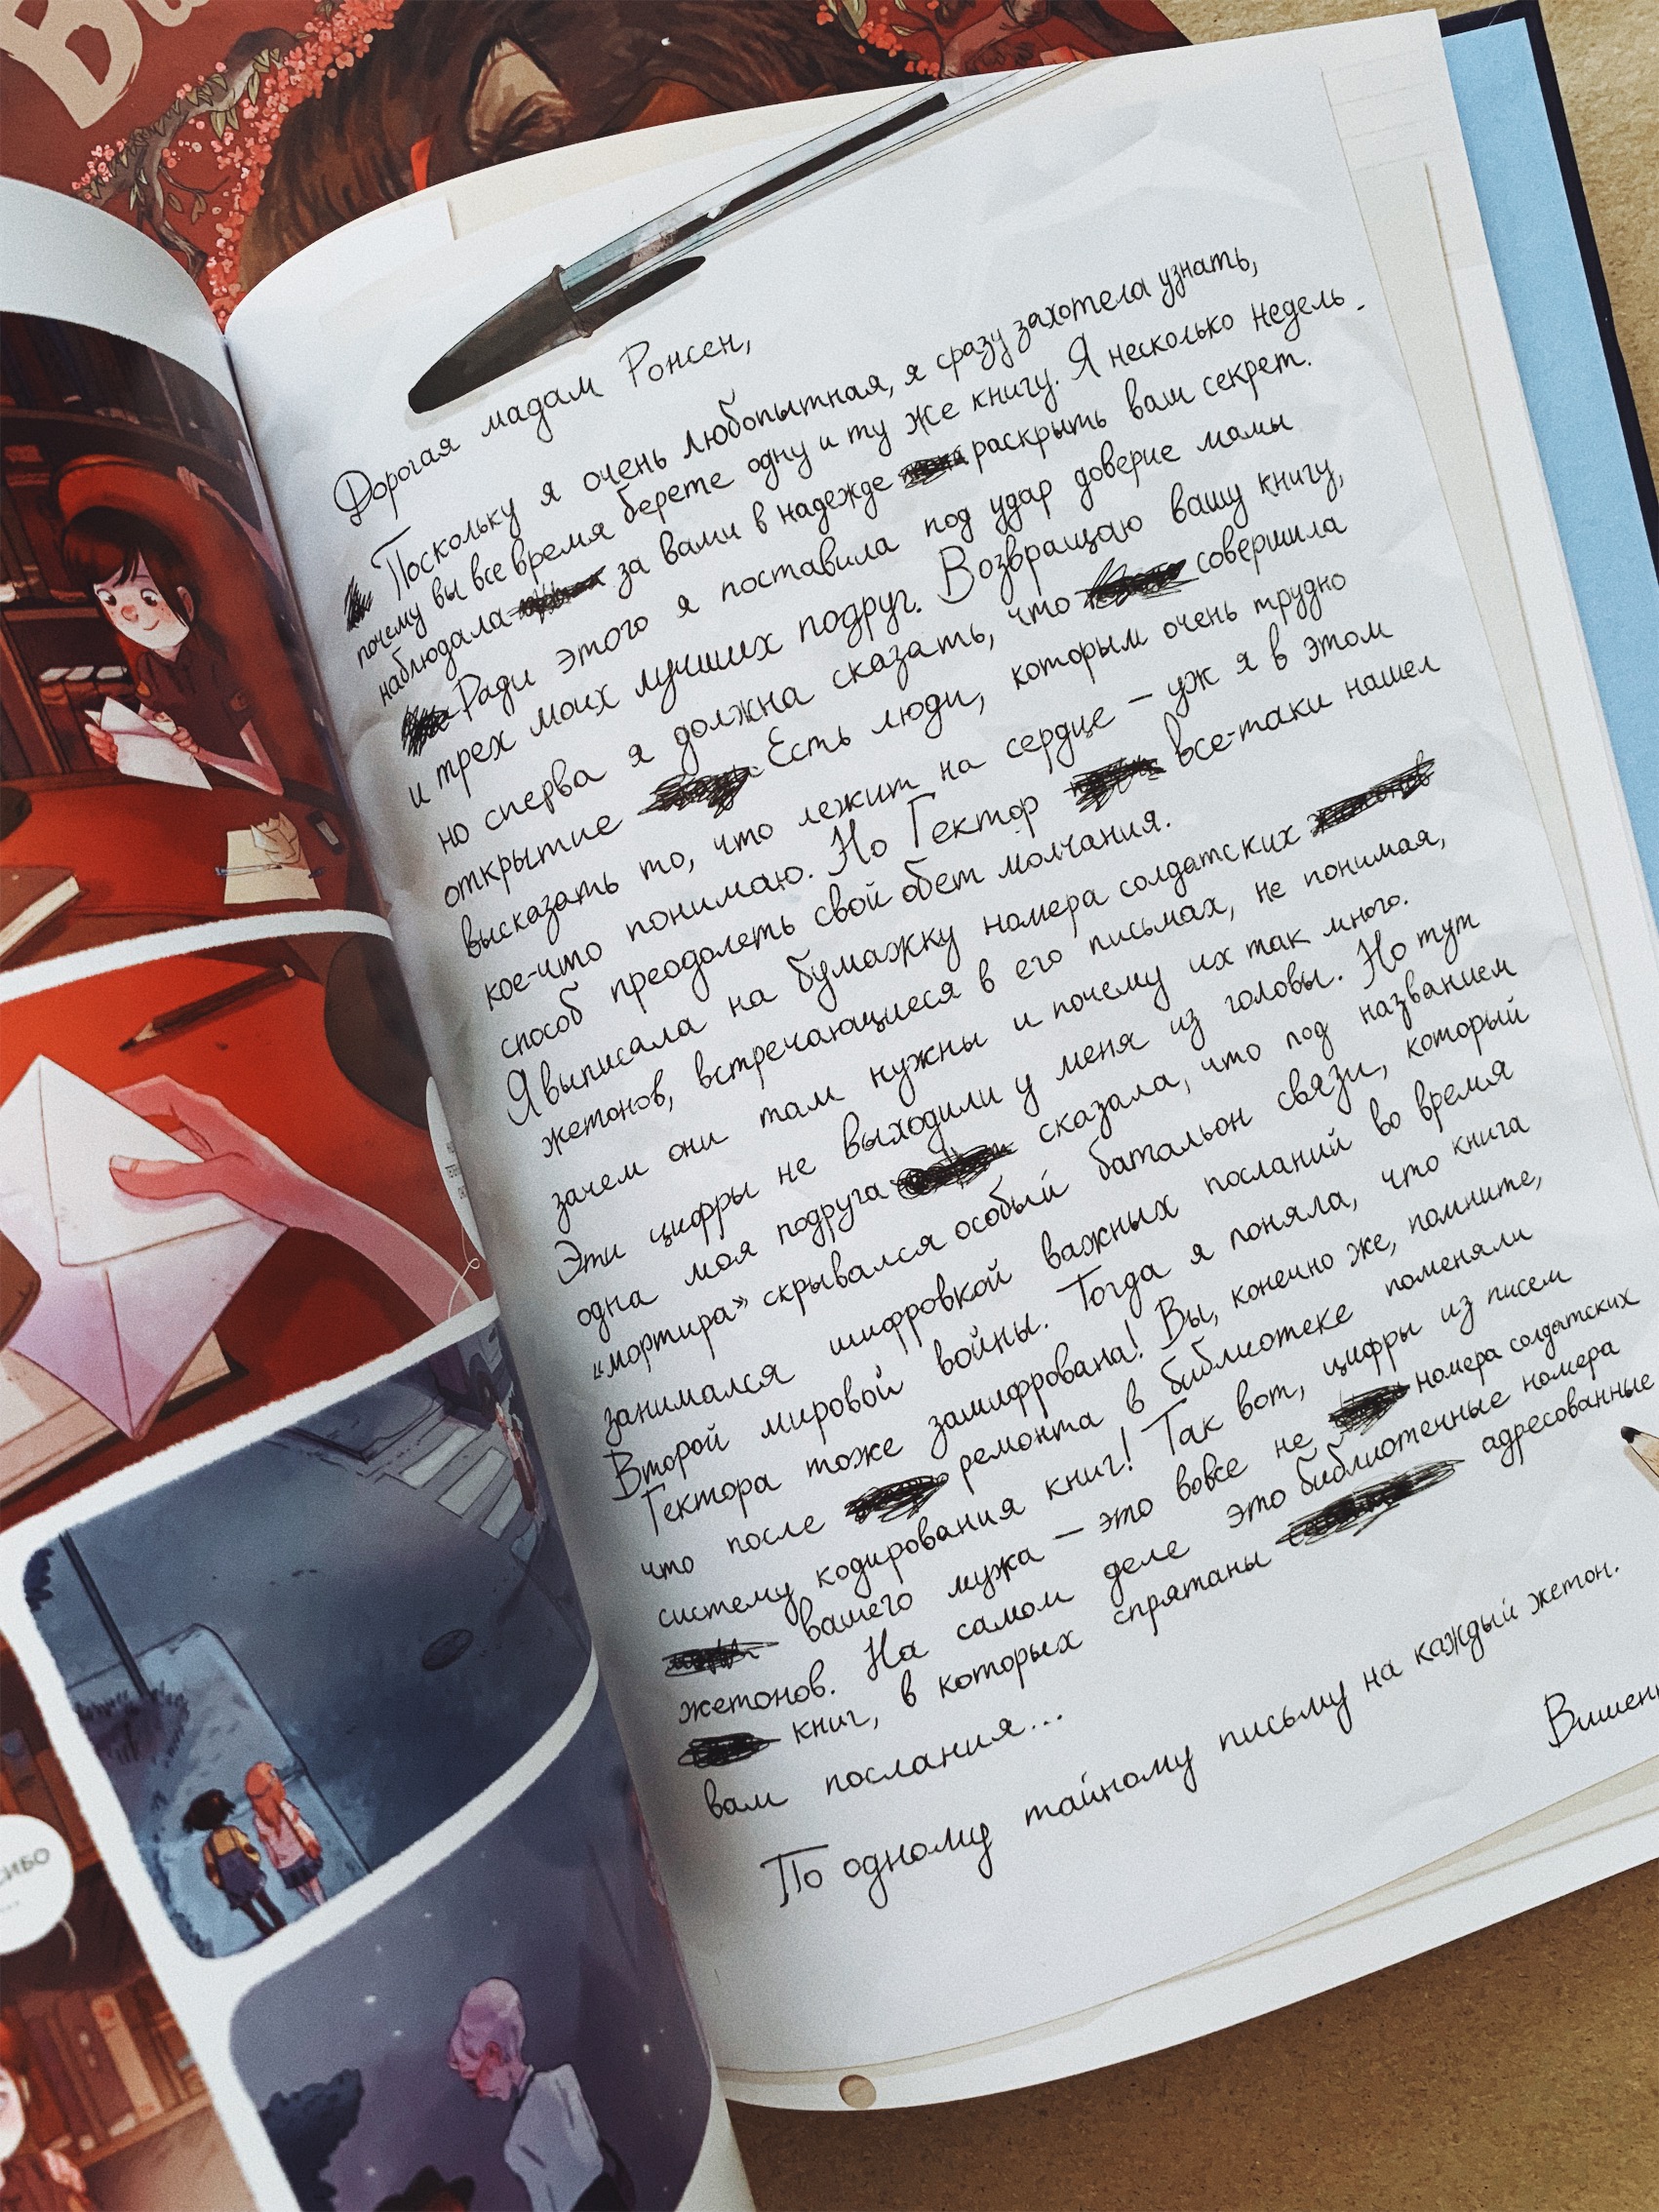 Дорогая мадам Ронсен,
Поскольку я очень любопытная, я сразу захотела узнать,
почему вы все время берете одну и ту же книгу. Я несколько недель
наблюдала за вами в надежде раскрыть ваш секрет.
Ради этого я поставила под удар доверие мамы
и трех моих лучших подруг. Возвращаю вашу книгу,
но сперва я должна сказать, что совершила
открытие Есть люди, которым очень трудно
высказать то, что лежит на сердце – уж я в этом
кое-что понимаю. Но Гектор все-таки нашел
способ преодолеть свой обет молчания.
Я выписала на бумажку номера солдатских
жетонов, встречающиеся в его письмах, не понимая,
зачем они там нужны и почему их так много.
Эти цифры не выходили у меня из головы. Но тут
одна моя подруга сказала, что под названием
«мортира» скрывался особый батальон связи, который
занимался шифровкой важных посланий во время
Второй мировой войны. Тогда я поняла, что книга
Гектора тоже зашифрована! Вы, конечно же, помните,
что после ремонта в библиотеке поменяли
систему кодирования книг! Так вот, цифры из писем
вашего мужа – это вовсе не номера солдатских
жетонов. На самом деле это библиотечные номера
книг, в которых спрятаны адресованные
вам послания...
По одному тайному письму на каждый жетон.